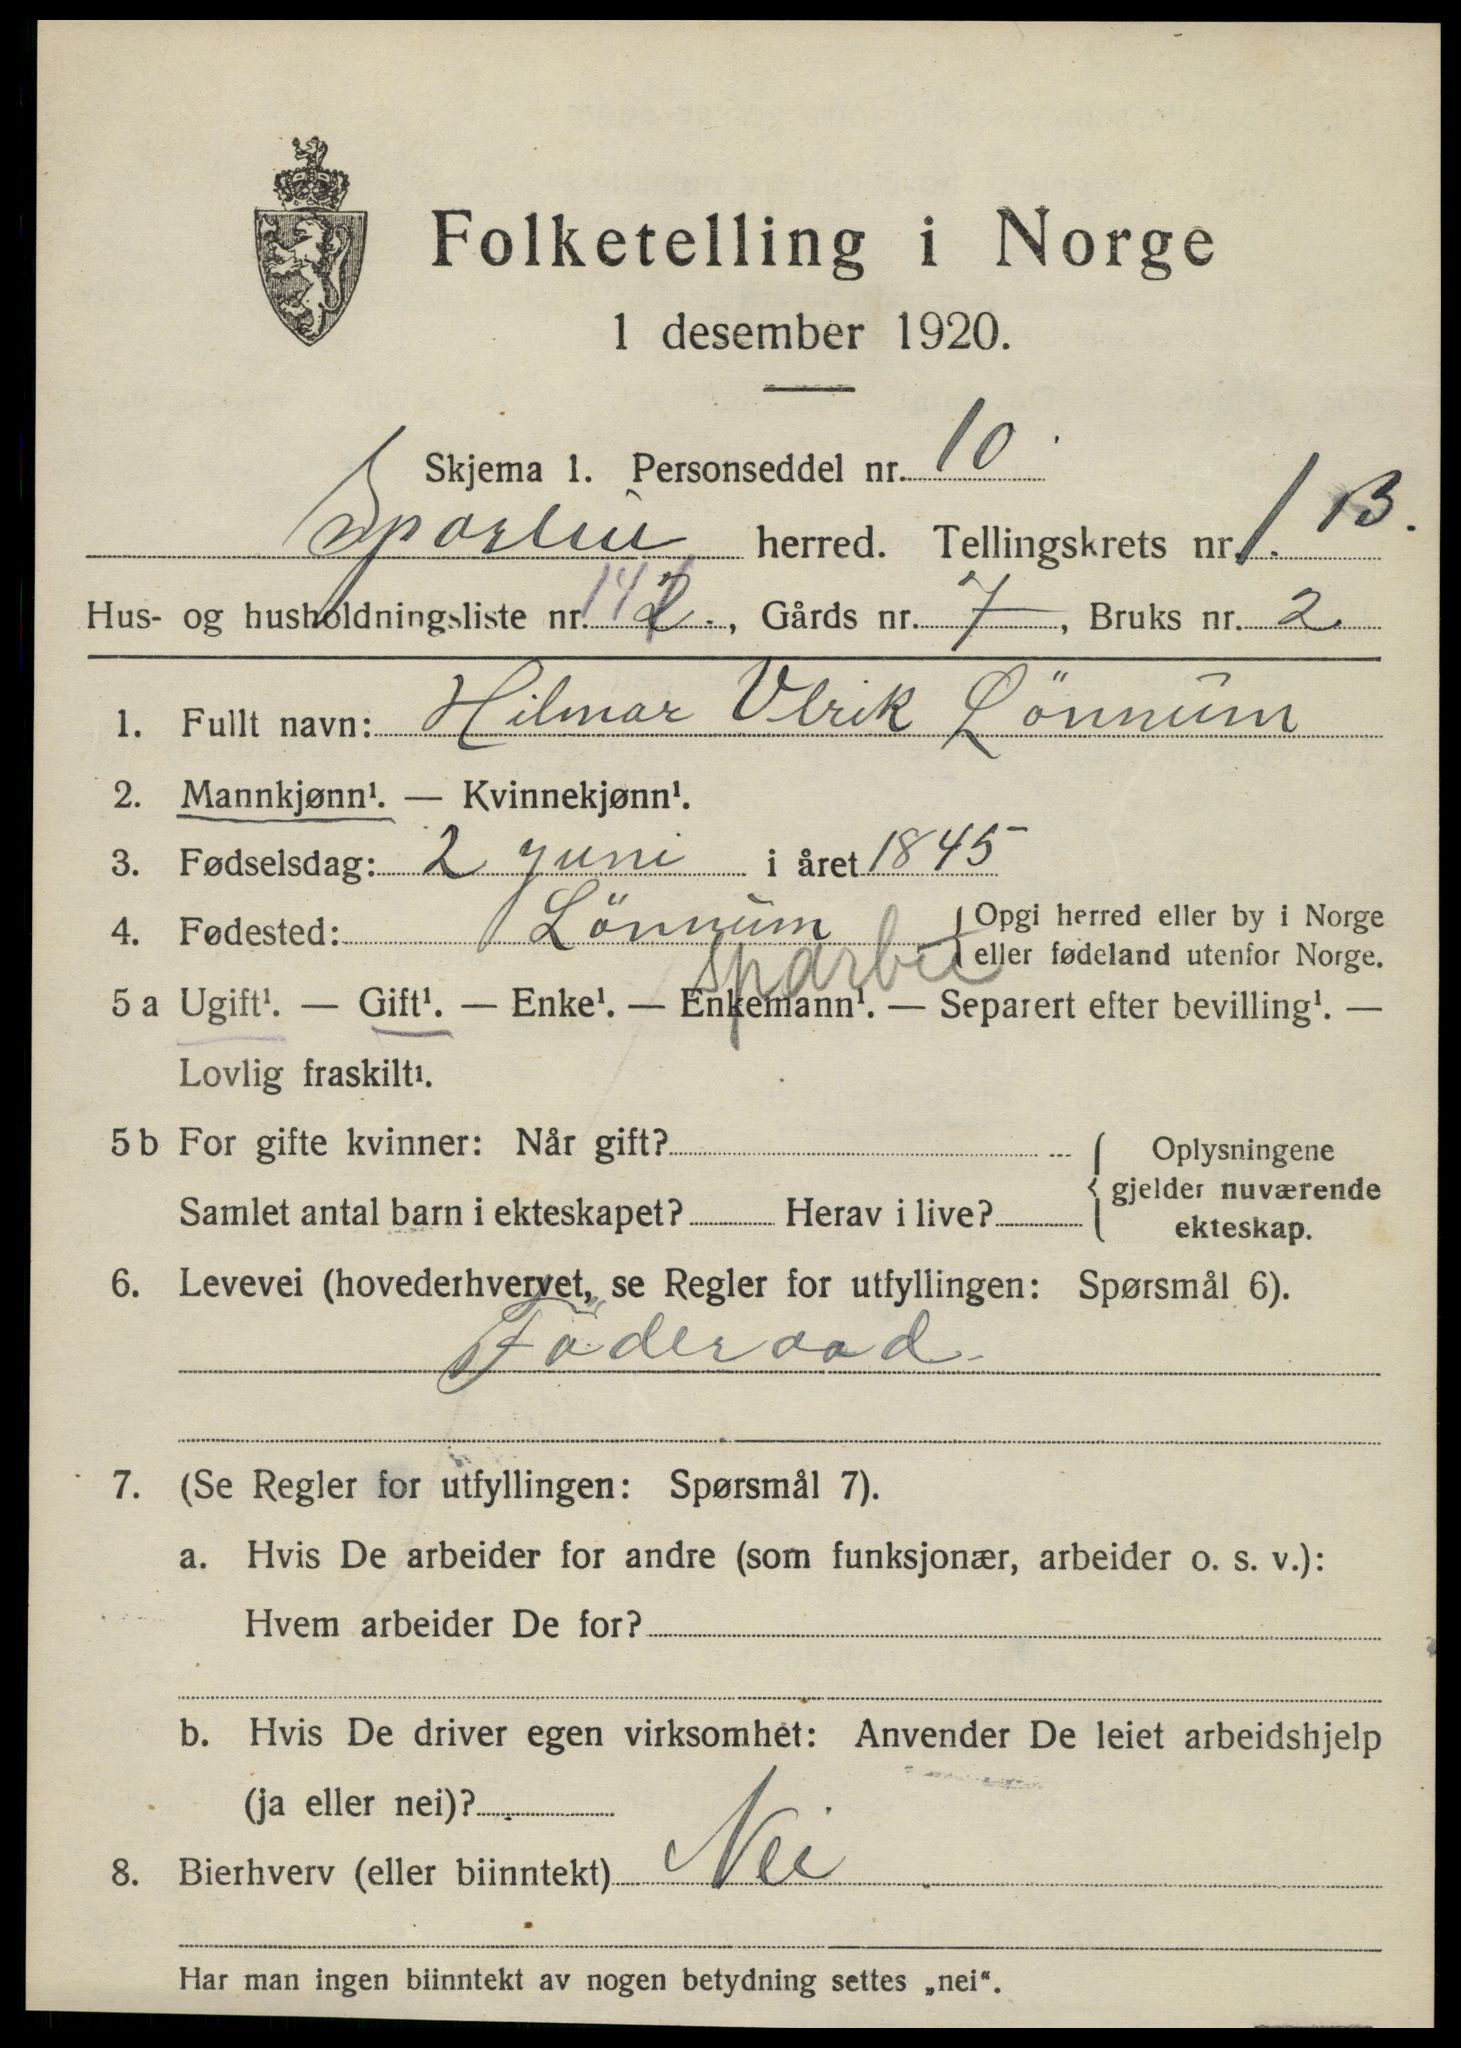 Folketelling i Norge
1 desember 1920.
Skjema 1. Personseddel nr. 10
Sparbu herred. Tellingskrets nr. 1. B.
Hus- og husholdningsliste nr. 2., Gårds nr. 7, Bruks nr. 2
1. Fullt navn: Hilmar Ulrik Lönnum
2. Mannkjønn¹. — Kvinnekjønn¹.
3. Fødselsdag: 2 juni i året 1845
4. Fødested: Lönnum { Opgi herred eller by i Norge
sparbu eller fødeland utenfor Norge.
5 a Ugift¹. — Gift¹. — Enke¹. — Enkemann¹. — Separert efter bevilling¹. —
Lovlig fraskilt¹.
5 b For gifte kvinner: Når gift? { Oplysningene
gjelder nuværende
Samlet antal barn i ekteskapet? Herav i live?
ekteskap.
6. Levevei (hovederhvervet, se Regler for utfyllingen: Spørsmål 6).
Föderaad
7. (Se Regler for utfyllingen: Spørsmål 7).
a. Hvis De arbeider for andre (som funksjonær, arbeider o. s. v.):
Hvem arbeider De for?
b. Hvis De driver egen virksomhet: Anvender De leiet arbeidshjelp
(ja eller nei)?
8. Bierhverv (eller biinntekt) Nei
Har man ingen biinntekt av nogen betydning settes „nei“.